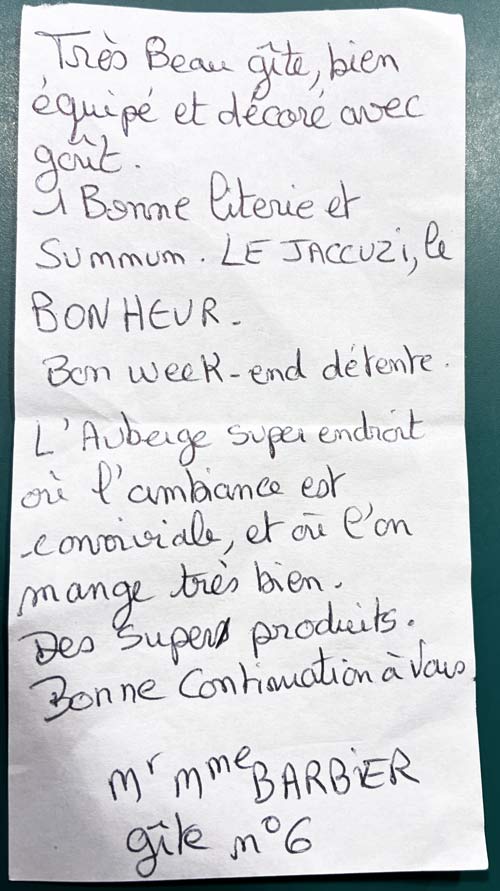 Très Beau gîte, bien
équipé et décoré avec
goût.
1 Bonne literie et
Summum. LE JACCUZI, le
BONHEUR.
Bon week-end détente.
L'Auberge super endroit
où l'ambiance est
conviviale, et où l'on
mange très bien.
Des Supers produits.
Bonne Continuation à Vous.
Mr Mme BARBIER
gîte n°6